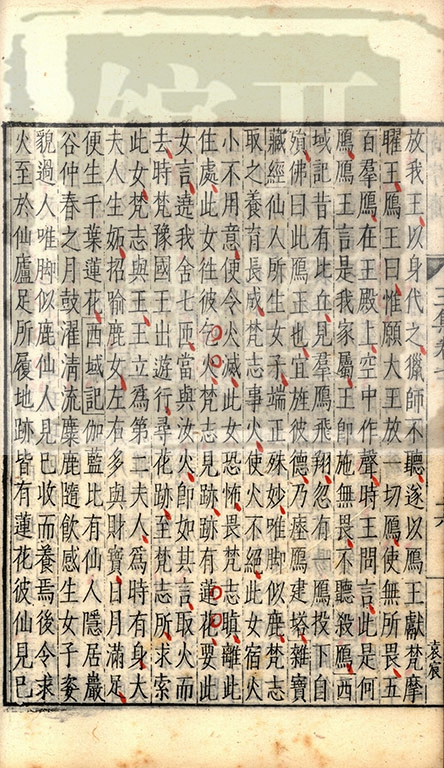 放我王以身代之獵師不聽遂以鴈王獻梵摩
曜王鴈王曰惟願大王放一切鴈使無所畏五
百羣鴈在王殿上空中作聲時王問言此是何
鴈鴈王言是我家屬王即施無畏不聽殺鴈西
域記昔有比丘見羣鴈飛翔忽有鴈投下自
殞佛曰此鴈王也宜旌彼德乃瘞鴈建塔雜寶
藏經仙人所生女子端正殊妙唯脚似鹿梵志
取之養育長成梵志事火使火不絕此女宿火
小不用意使令火滅此女恐怖畏梵志瞋離此
住處此女往彼乞火梵志見跡跡有蓮花要此
女言遶我舍七匝當與汝火即如其言取火而
去時梵豫國王出遊行尋花跡至梵志所求索
此女梵志與王王立爲第二夫人爲時有身大
夫人生妬招喻鹿女左右多與財寶日月滿足
便生千葉蓮花西域記伽藍比有仙人隱居巖
谷仲春之月鼓濯清流麋鹿隨飲感生女子姿
貌過人唯脚似鹿仙人見已收而養焉後令求
火至於仙廬足所履地跡皆有蓮花彼仙見已